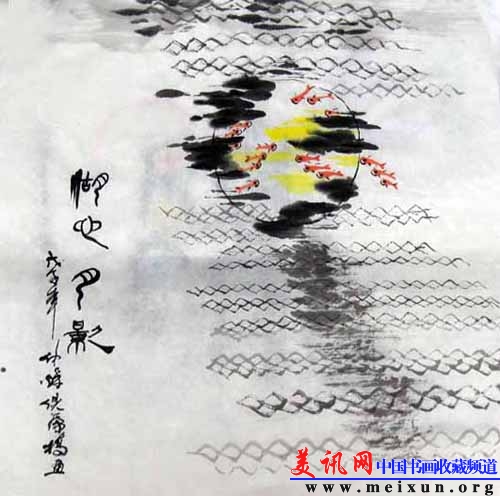 湖心月影
戊子年
美讯网 中国书画收藏频道
www.meixun.org